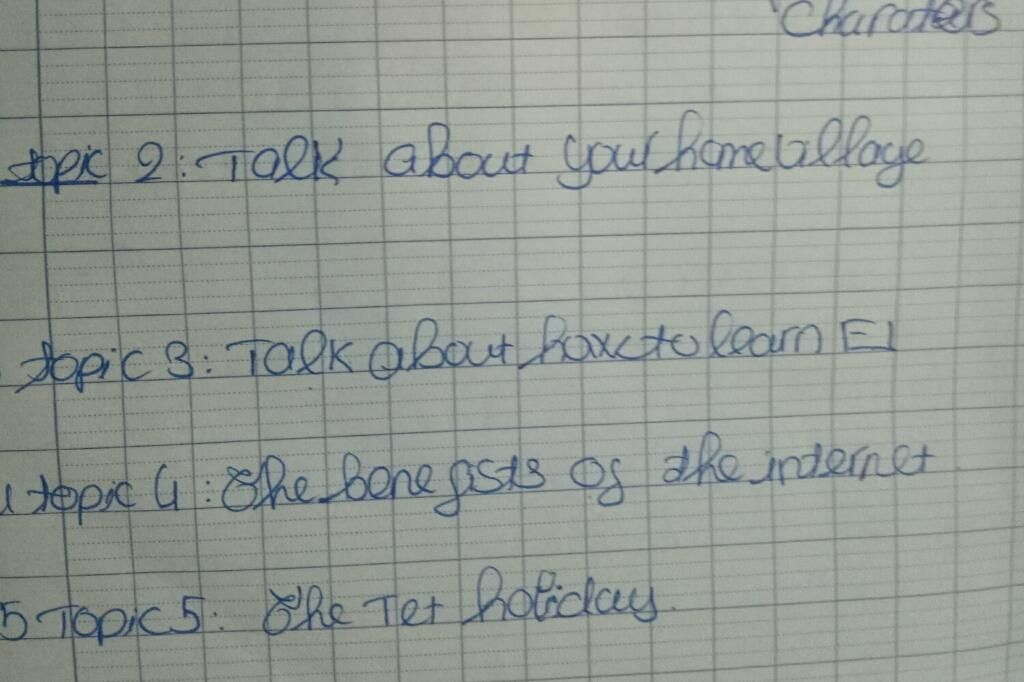 Characters
topic 2: Talk about your home village
topic 3: Talk about how to learn E
topic 4: The benefists of the internet
5 Topic 5: The Tet holiday.